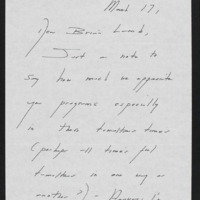 March 17,
Dear Boris
Just a note to
say how much we appreciate
your programs especially
in these troublous times
(perhaps all times feel
troublous in one way or
another?) -